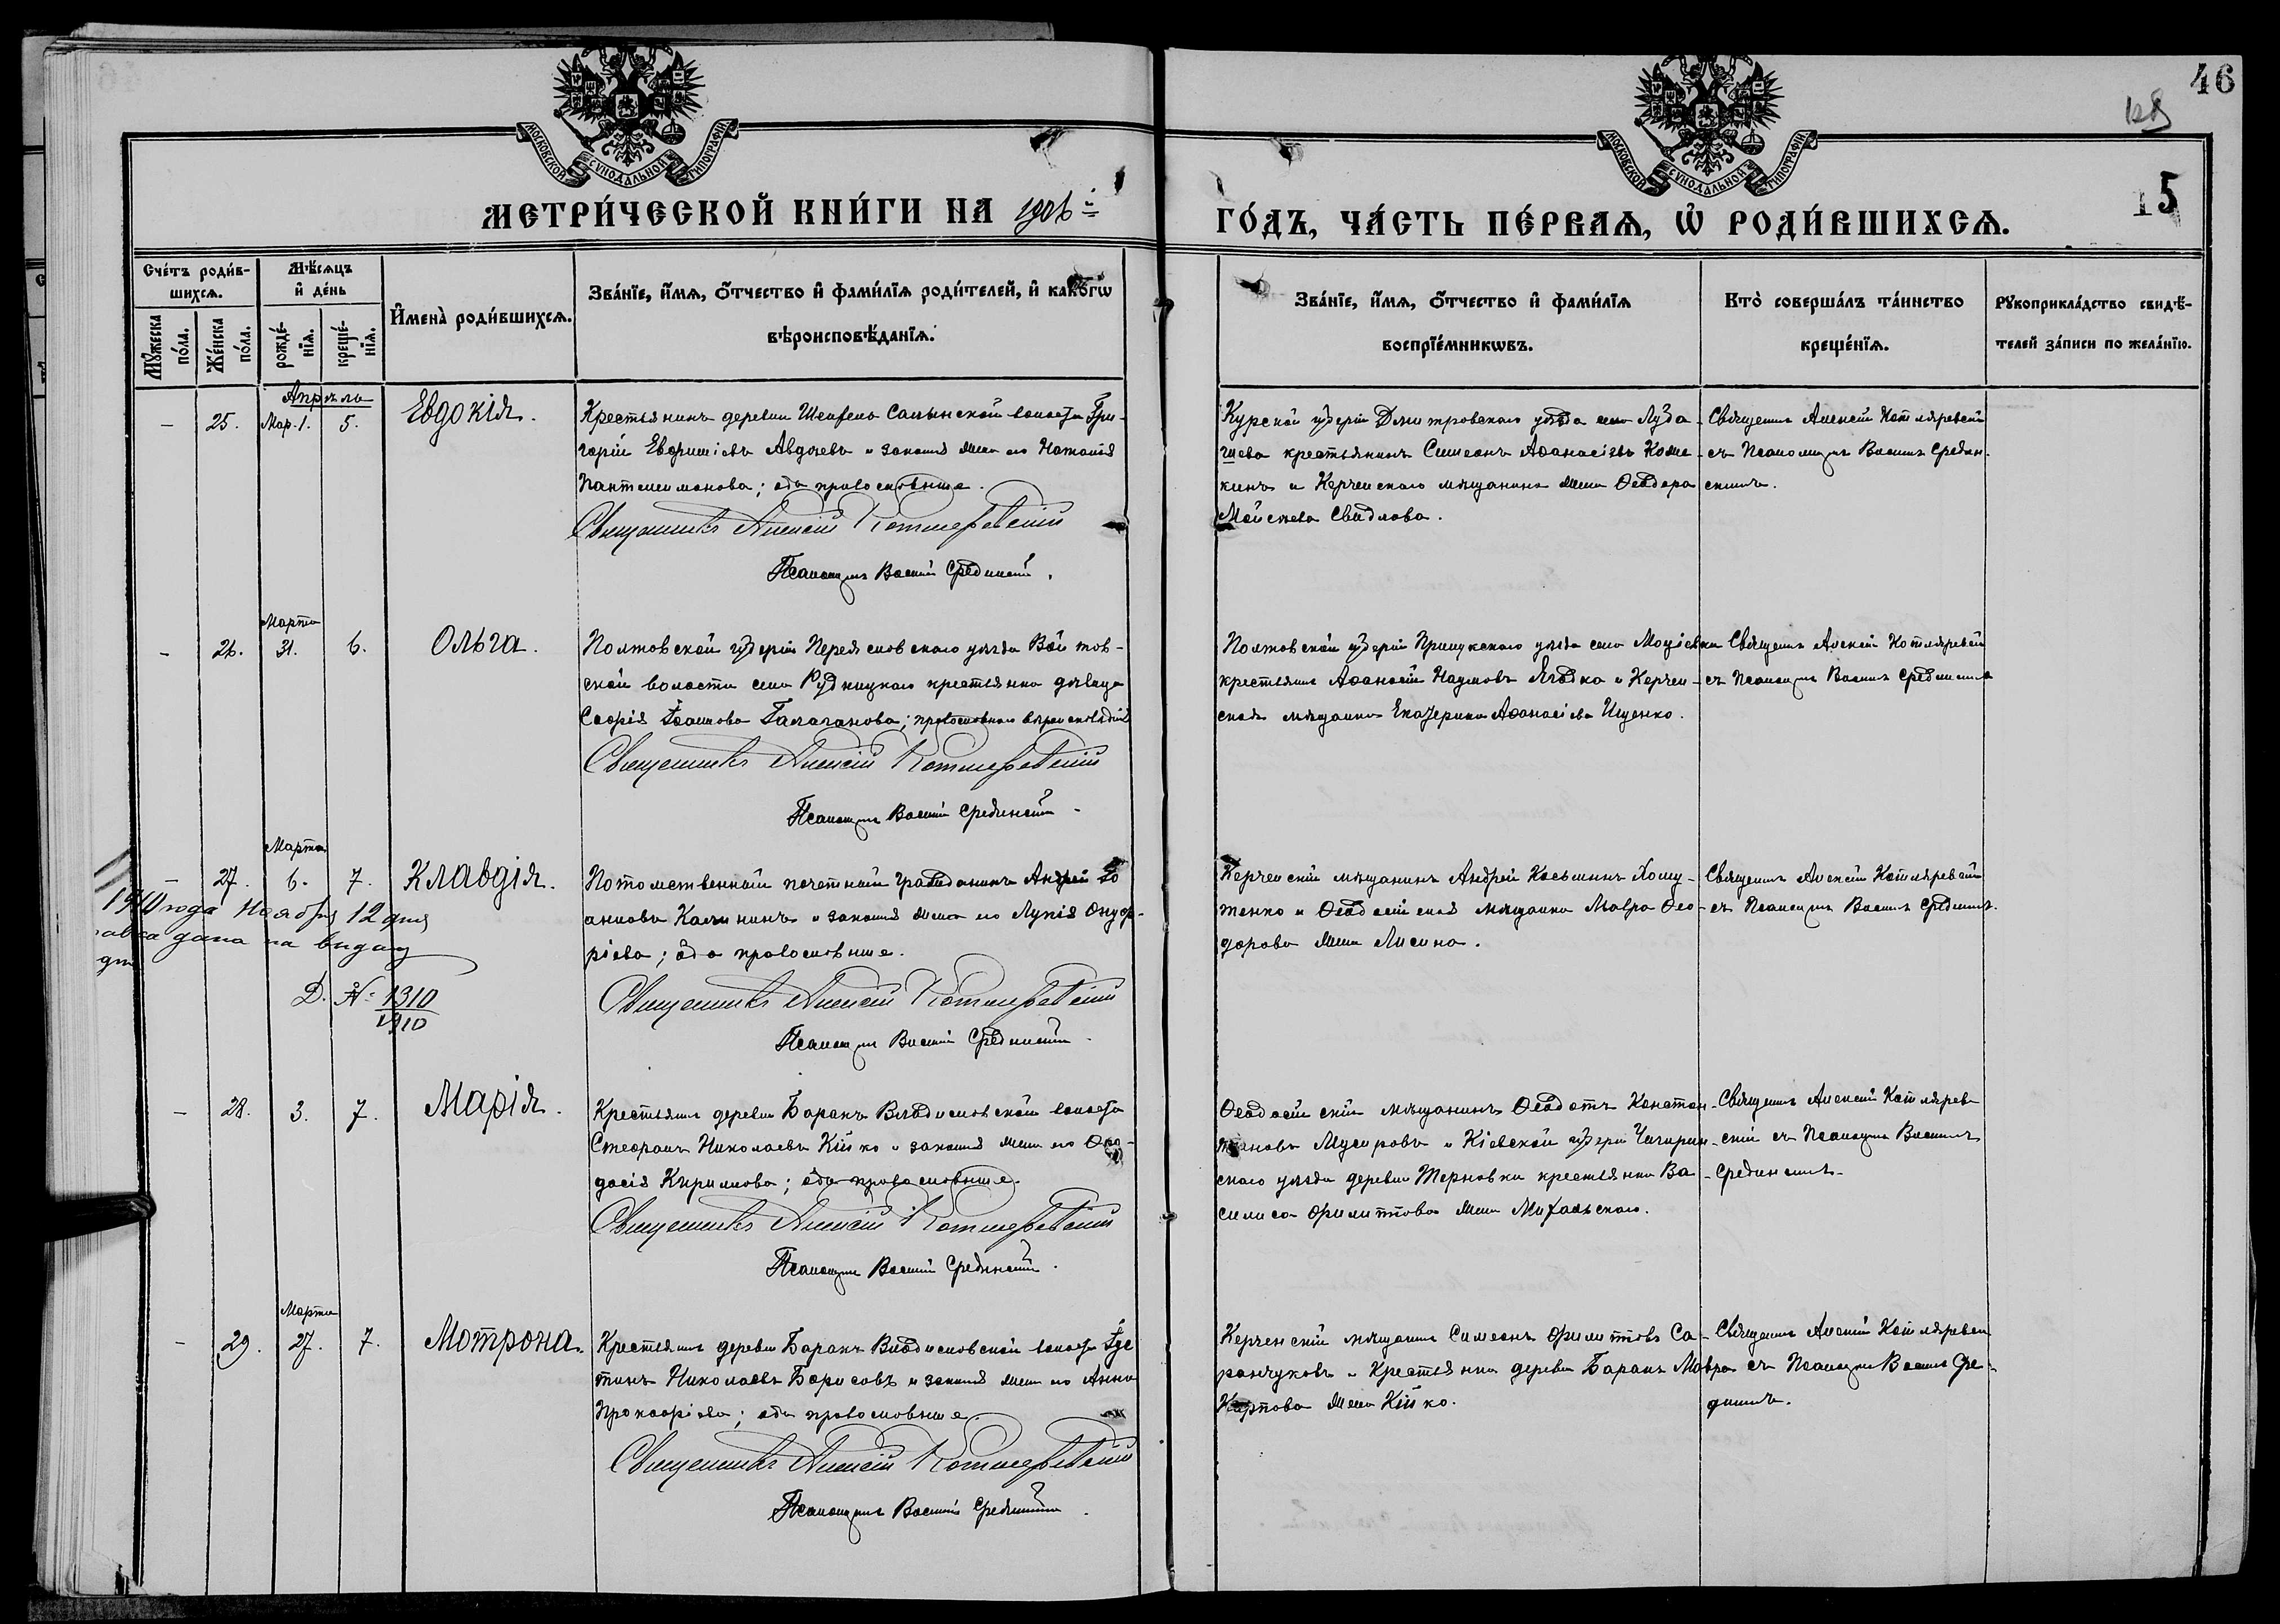 46
128
15
МОСКОВСКОЙ СУНОДАЛЬНОЙ ТИПОГРАФІИ
МОСКОВСКОЙ СУНОДАЛЬНОЙ ТИПОГРАФІИ
МЕТРИ́ЧЕСКОЙ КНИ́ГИ НА 1906 й
ГО́ДЪ, ЧА́СТЬ ПЕ́РВАѦ, Ѡ҆ РОДИ́ВШИХСѦ.
Сче́тъ роди́в-
шихсѧ.
Мꙋ́жеска по́ла.
Же́нска по́ла.
Мѣ́сѧцъ
и҆ де́нь
рожде́-
нїѧ.
креще́-
нїѧ.
И҆мена̀ роди́вшихсѧ.
Зва́нїе, и҆́мѧ, ѻ҆́тчество и҆ фами́лїѧ роди́телей, и҆ како́гѡ
вѣроисповѣ́данїѧ.
Зва́нїе, и҆́мѧ, ѻ҆́тчество и҆ фами́лїѧ
воспрїе́мникѡвъ.
Кто̀ соверша́лъ та́инство
креще́нїѧ.
Рꙋкоприкла́дство свидѣ́-
телей за́писи по жела́нїю.
Апрѣль
- 25. Мар. 1. 5. Евдокія.
Крестьянинъ деревни Шейхело Салынской волости Гри-
горій Евфиміевъ Авдѣевъ и законная жена его Наталія
Пантелеимонова; оба православные.
Священникъ Алексій Котляревскій
Псаломщикъ Василій Срединскій.
Курской губерніи Дмитровского уѣзда села Луба-
шева крестьянинъ Симеонъ Аѳанасіевъ Коше-
кинъ и Керченского мѣщанина жена Ѳеодора
Моисеева Свидлова.
Священникъ Алексій Котляревскій
съ Псаломщик. Василіемъ Средин-
скимъ.
Марта
- 26. 31. 6. Ольга.
Полтовской губерніи Переясловского уѣзда Войтов-
ской волости села Рудницкого крестьянка дѣвица
Софія Іоаннова Галаганова; православного вѣроисповѣданія
Священникъ Алексій Котляревскій
Псаломщикъ Василій Срединскій.
Полтовской губерніи Прилукского уѣзда села Мацѣевки
крестьянинъ Аѳанасій Наумовъ Ягодка и Керчен-
ская мѣщанка Екатерина Аѳанасіева Ищенко.
Священникъ Алексій Котляревскій
съ Псаломщик. Василіемъ Срединскимъ
Марта
- 27. 6. 7. Клавдія.
1910 года Ноября 12 дня
дана на выдачу
Д. № 1310
1910
Потомственный почетный гражданинъ Андрей Іо-
анновъ Калининъ и законная жена его Лукія Онуф-
ріева; оба православные.
Священникъ Алексій Котляревскій
Псаломщикъ Василій Срединскій.
Керченскій мѣщанинъ Андрей Косьминъ Хому-
тенко и Ѳеодосійская мѣщанка Мавра Ѳео-
дорова жена Лисина.
Священникъ Алексій Котляревскій
съ Псаломщик. Василіемъ Срединскимъ.
- 28. 3. 7. Марія.
Крестьянинъ деревни Баракъ Владиславской волости
Стефанъ Николаевъ Кійко и законная жена его Ѳео-
досія Кирилова; оба православные.
Священникъ Алексій Котляревскій
Псаломщикъ Василій Срединскій.
Ѳеодосійскій мѣщанинъ Ѳеодотъ Констан-
тиновъ Мусировъ и Кіевской губерніи Чигирин-
ского уѣзда деревни Терновки крестьянка Ва-
силиса Филиппова жена Михальского.
Священникъ Алексій Котлярев-
скій съ Псаломщик. Василіемъ
Срединскимъ.
Марта
- 29. 27. 7. Мотрона.
Крестьянинъ деревни Баракъ Владиславской волости Іус-
тинъ Николаевъ Борисовъ и законная жена его Анна
Прокофіева; оба православные.
Священникъ Алексій Котляревскій
Псаломщикъ Василій Срединскій.
Керченскій мѣщанинъ Симеонъ Филиповъ Са-
ранчуковъ и крестьянка деревни Баракъ Мавра
Карпова жена Кійко.
Священникъ Алексій Котляревскій
съ Псаломщик. Василіемъ Сре-
динскимъ.